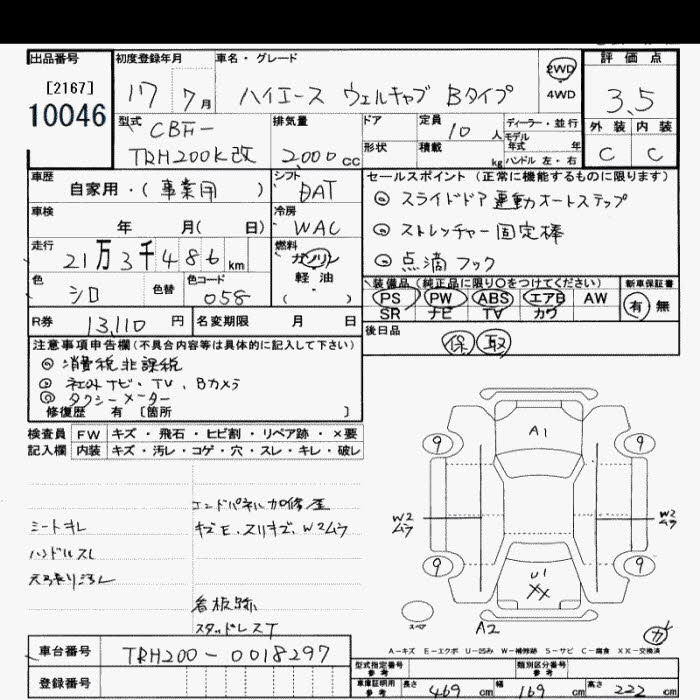 出品番号
[2167]
10046
初度登録年月
17 7月
車名・グレード
ハイエース ウェルキャブ Bタイプ
2WD
4WD
評価点
3.5
外装 内装
C C
型式
CBF-
TRH200K改
排気量
2,000cc
ドア
形状
定員
10人
積載
kg
ディーラー・並行
モデル年式 年
ハンドル 左・右
車歴
自家用・(事業用)
シフト
DAT
車検
年 月( 日)
冷房
WAC
走行
21万3千486km
燃料
ガソリン
軽油
( )
色
シロ
色替
色コード
058
R券
13,110円
名変期限 月 日
セールスポイント(正常に機能するものに限ります)
◎ スライドドア連動オートステップ
◎ ストレッチャー固定棒
◎ 点滴フック
装備品(純正品に限り○をつけてください)
PS PW ABS エアB AW
SR ナビ TV カワ
新車保証書
有 無
後日品
保 取
注意事項申告欄(不具合内容等は具体的に記入して下さい)
◎ 消費税非課税
◎ 社外ナビ・TV、Bカメラ
◎ タクシーメーター
修復歴 有 [箇所 ]
検査員記入欄
FW キズ・飛石・ヒビ割・リペア跡・×要
内装 キズ・汚レ・コゲ・穴・スレ・キレ・破レ
エンドパネル加修歪
シートキレ
キズE、スリキズ、W2ムラ
ハンドルスレ
天張り汚レ
看板跡
スタッドレスT
A1
9 9
W2ムラ
W2ムラ
9 9
U1
XX
スペア
A2
カ
A−キズ E−エクボ U−凹み W−補修跡 S−サビ C−腐食 XX−交換済
車台番号
TRH200-0018297
登録番号
型式指定番号
参考
類別区分番号
参考
車庫証明用
参考
長さ 469cm 幅 169cm 高さ 222cm